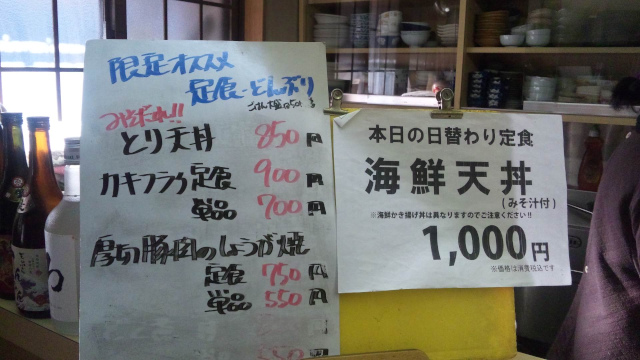 限定オススメ
定食・どんぶり
ごはん大盛
とり天丼 850円
カキフライ定食 900円
単品 700円
厚切豚肉のしょうが焼
定食 750円
単品 550円
本日の日替わり定食
海鮮天丼
(みそ汁付)
※海鮮かき揚げ丼は異なりますのでご注意ください!!
1,000円
※価格は消費税込です